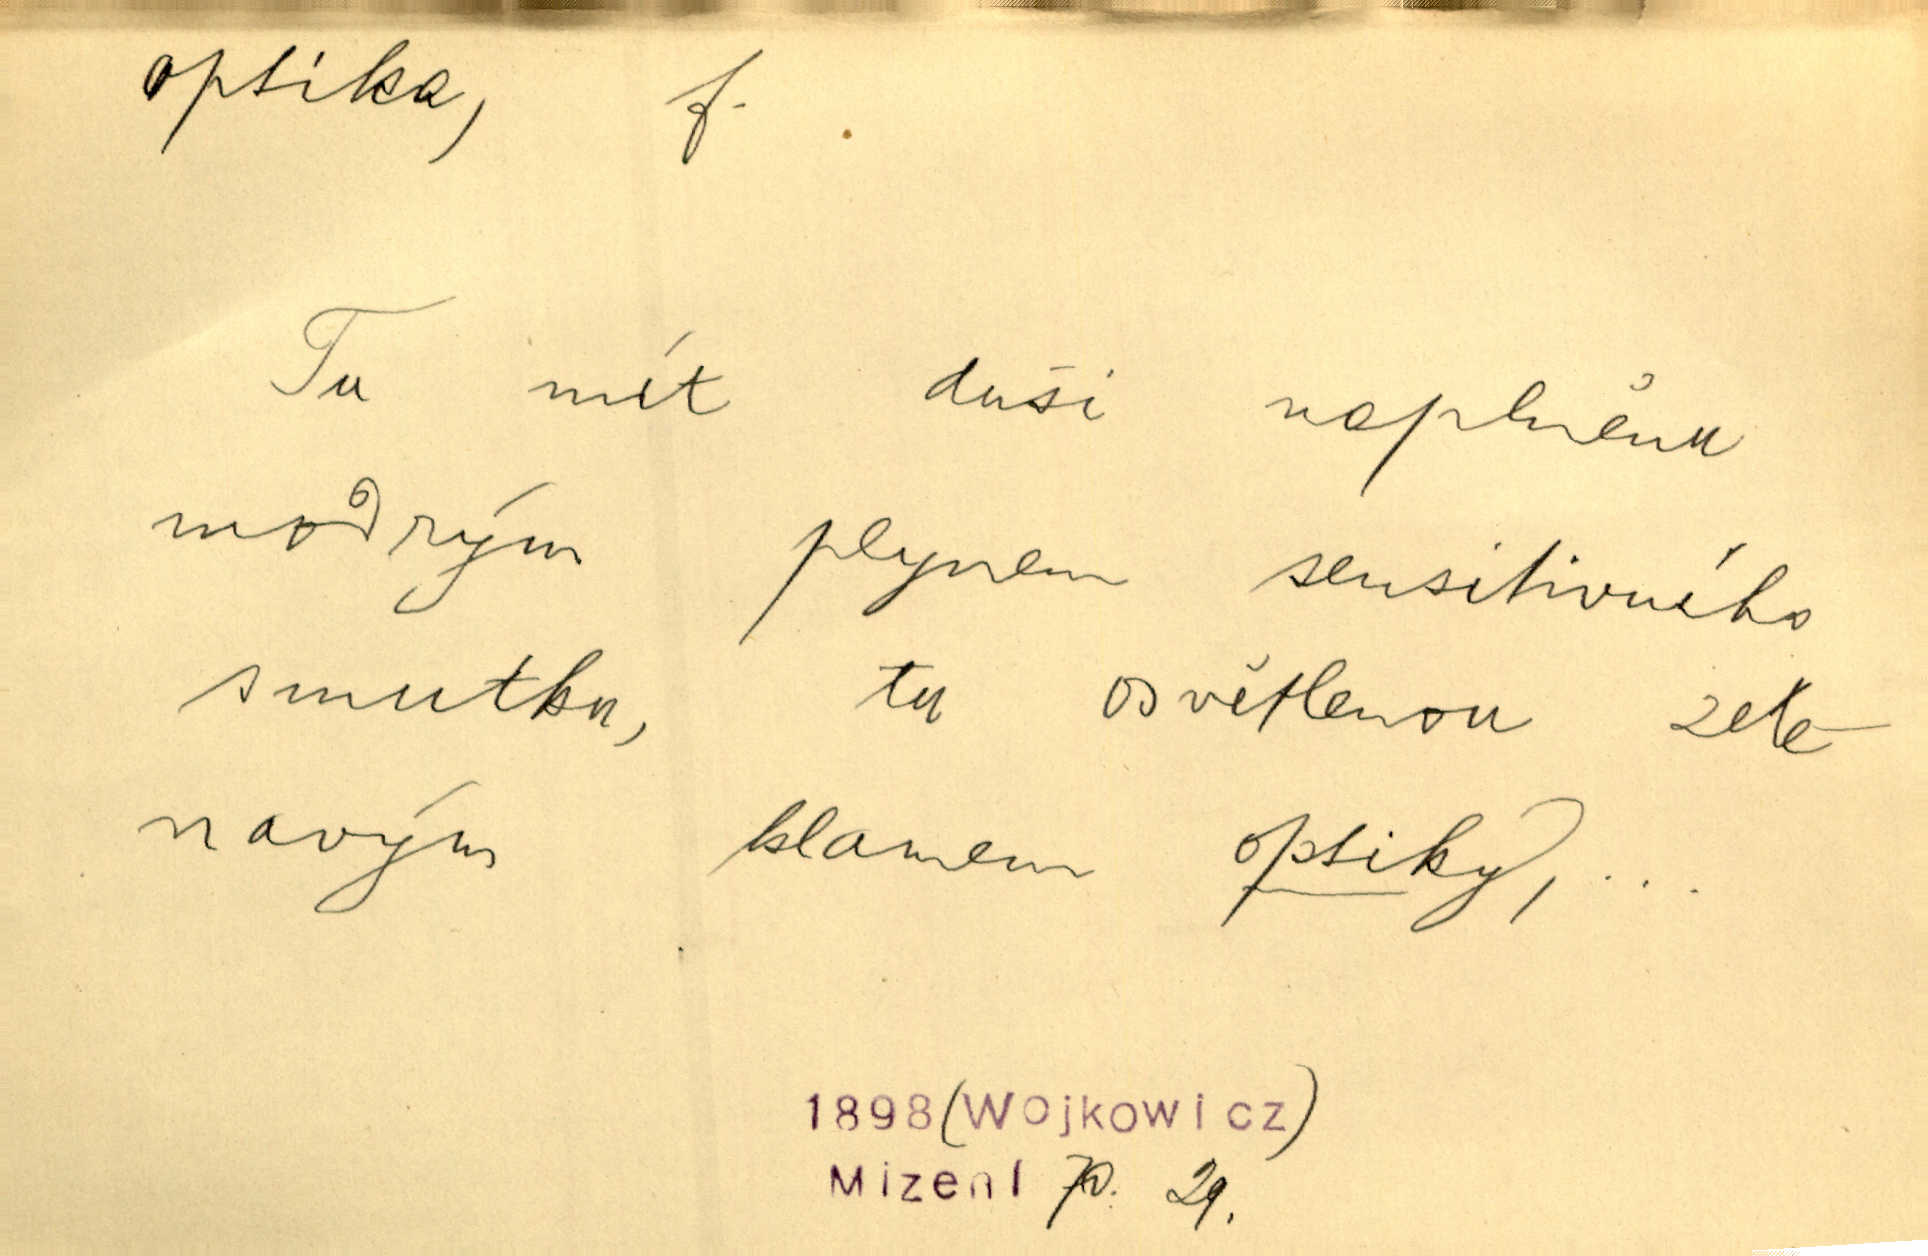 optika, f.
Tu mít duši naplněnu
modrým plynem sensitivního
smutku, tu osvětlenou zele-
navým klamem optiky, ...
1898 (Wojkowicz)
Mizení 29.